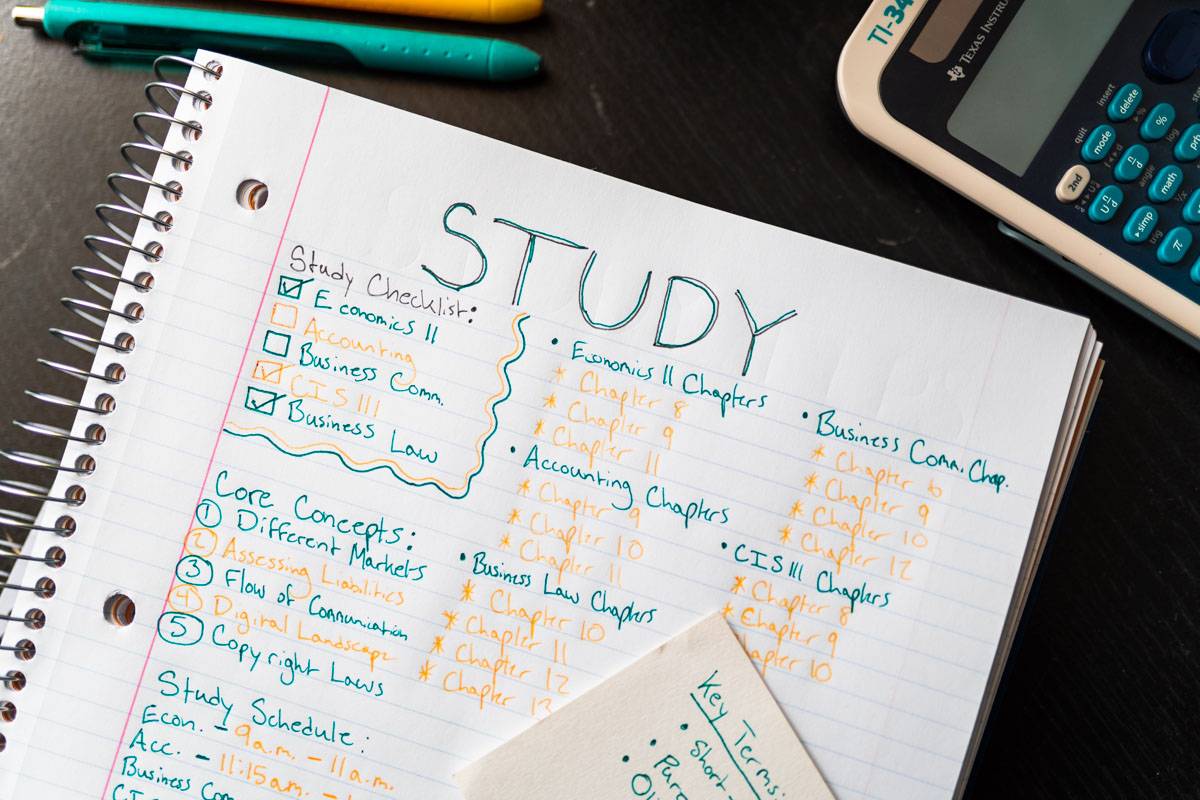 STUDY
Study Checklist:
Economics II
Accounting
Business Comm.
CIS III
Business Law
Core Concepts:
1 Different Markets
2 Assessing Liabilities
3 Flow of Communication
4 Digital Landscape
5 Copyright Laws
Study Schedule:
Econ. - 9a.m. - 11a.m.
Acc. - 11:15am. -
Business Com
• Economics II Chapters
* Chapter 8
* Chapter 9
* Chapter 11
• Accounting Chapters
* Chapter 9
* Chapter 10
* Chapter 11
• Business Law Chapters
* Chapter 10
* Chapter 11
* Chapter 12
* Chapter 13
• Business Comm. Chap.
* Chapter 6
* Chapter 9
* Chapter 10
* Chapter 12
• CIS III Chapters
* Chapter 8
* Chapter 9
Chapter 10
Key Terms:
• Short-
•
•
TI-34
TEXAS INSTRU
insert
delete
quit
mode
%
2nd
n/d
math
U n/d
▸simp
π
log
angle
trig